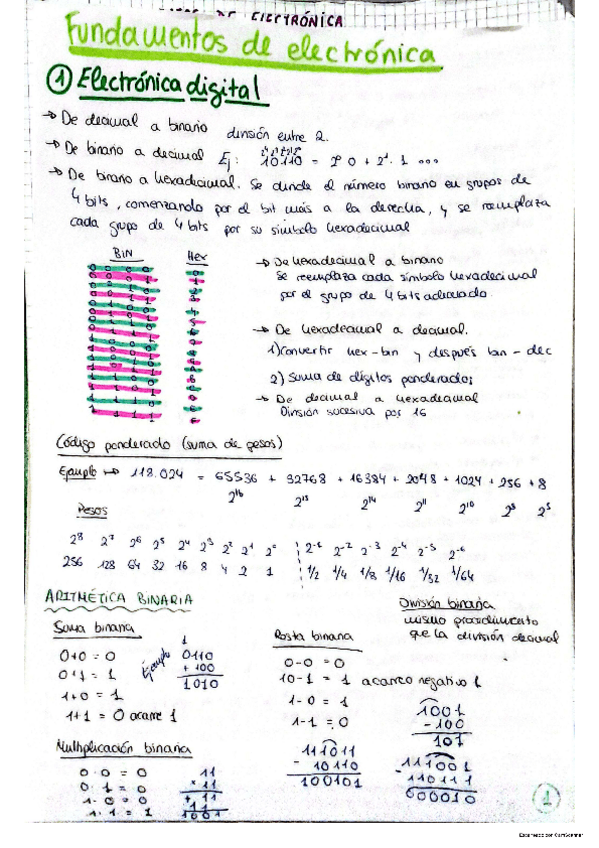 ELECTRÓNICA
Fundamentos de electrónica
① Electrónica digital
→ De decimal a binario división entre 2.
→ De binario a decimal Ej: 10110 = 2⁰ 0 + 2¹ · 1 ...
→ De binario a hexadecimal. Se divide el número binario en grupos de
4 bits, comenzando por el bit más a la derecha, y se reemplaza
cada grupo de 4 bits por su símbolo hexadecimal
BIN HEX
0 0 0 0 0
0 0 0 1 1
0 0 1 0 2
→ De hexadecimal a binario
Se reemplaza cada símbolo hexadecimal
por el grupo de 4 bits adecuado.
→ De hexadecimal a decimal.
1) Convertir hex-bin y después bin-dec
2) Suma de dígitos ponderados
→ De decimal a hexadecimal
División sucesiva por 16
Código ponderado (suma de pesos)
Ejemplo → 118.024 = 65536 + 32768 + 16384 + 2048 + 1024 + 256 + 8
2¹⁶ 2¹⁵ 2¹⁴ 2¹¹ 2¹⁰ 2⁸ 2³
Pesos
2⁸ 2⁷ 2⁶ 2⁵ 2⁴ 2³ 2² 2¹ 2⁰ 2⁻¹ 2⁻² 2⁻³ 2⁻⁴ 2⁻⁵ 2⁻⁶
256 128 64 32 16 8 4 2 1 1/2 1/4 1/8 1/16 1/32 1/64
ARITMÉTICA BINARIA
Suma binaria
0+0 = 0
0+1 = 1
1+0 = 1
1+1 = 0 acarreo 1
Ejemplo
1
0110
+ 100
1010
Multiplicación binaria
0 · 0 = 0
0 · 1 = 0
1 · 0 = 0
1 · 1 = 1
11
× 11
+ 11
11
1001
Resta binaria
0-0 = 0
10-1 = 1 acarreo negativo 1
1-0 = 1
1-1 = 0
111011
- 10110
100101
División binaria
mismo procedimiento
que la división decimal
1001
- 100
101
111001
- 110111
000010
1
Escaneado con CamScanner